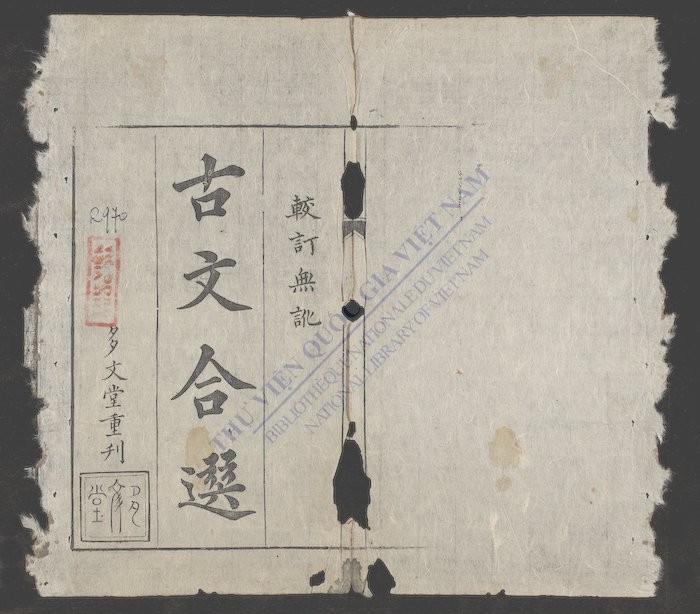 較訂無訛
古文合選
多文堂重刋
R970
THƯ VIỆN QUỐC GIA VIỆT NAM
BIBLIOTHÈQUE NATIONALE DU VIETNAM
NATIONAL LIBRARY OF VIETNAM